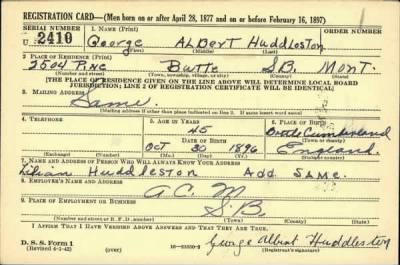 REGISTRATION CARD—(Men born on or after April 28, 1877 and on or before February 16, 1897)
SERIAL NUMBER 1. NAME (Print) ORDER NUMBER
U 2410 George Albert Huddleston
(First) (Middle) (Last)
2. PLACE OF RESIDENCE (Print)
2504 Pine Butte S.B. Mont.
(Number and street) (Town, township, village, or city) (County) (State)
[THE PLACE OF RESIDENCE GIVEN ON THE LINE ABOVE WILL DETERMINE LOCAL BOARD
JURISDICTION; LINE 2 OF REGISTRATION CERTIFICATE WILL BE IDENTICAL]
3. MAILING ADDRESS
Same.
[Mailing address if other than place indicated on line 2. If same insert word same]
4. TELEPHONE 5. AGE IN YEARS 6. PLACE OF BIRTH
45 Cumberland
DATE OF BIRTH (Town or county)
Oct 30 1896 England
(Exchange) (Number) (Mo.) (Day) (Yr.) (State or country)
7. NAME AND ADDRESS OF PERSON WHO WILL ALWAYS KNOW YOUR ADDRESS
Lilian Huddleston Add Same.
8. EMPLOYER'S NAME AND ADDRESS
A.C.M
9. PLACE OF EMPLOYMENT OR BUSINESS
S.B.
(Number and street or R. F. D. number) (Town) (County) (State)
I AFFIRM THAT I HAVE VERIFIED ABOVE ANSWERS AND THAT THEY ARE TRUE.
D. S. S. Form 1
(Revised 4-1-42) (over) George Albert Huddleston
(Registrant's signature)